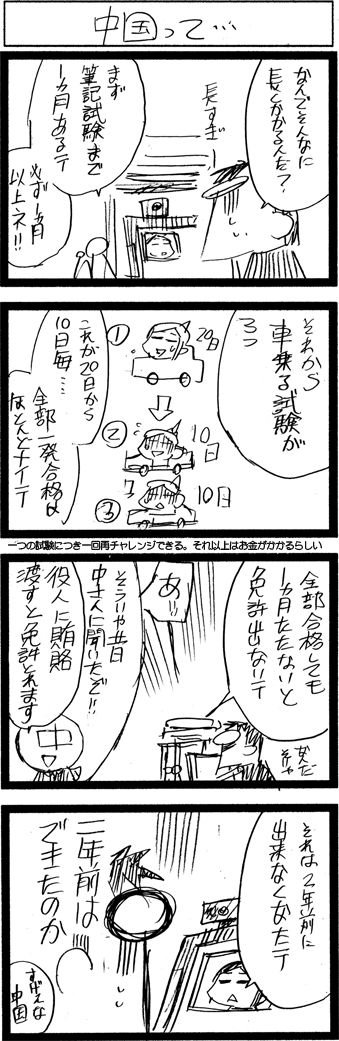 中国って…
なんでそんなに
長くかかるんだ?
長すぎー
まず
筆記試験まで
1ヵ月あるテ
必ず1ヵ月
以上ネ!!
それから
車乗る試験が
3つ
① 20日
② 10日
③ 10日
これが20日から
10日毎…
全部一発合格は
ほとんどナイテ
一つの試験につき一回再チャレンジできる。それ以上はお金がかかるらしい
全部合格しても
1ヵ月たたないと
免許出ないテ
なんだ
そりゃ
あッ
そういや昔日
中さんに聞いたぞ!!
役人に賄賂
渡すと免許とれます
中
それは2年前に
出来なくなたテ
二年前は
できたのか
すげぇな
中国